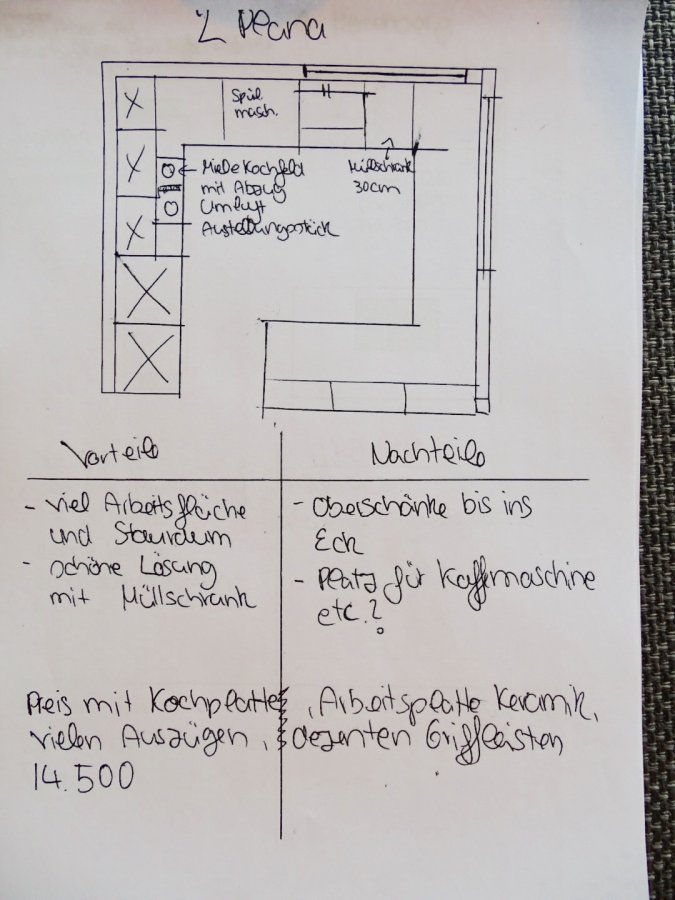 2 Plana
Spül.
masch.
Miele Kochfeld
mit Abzug
Umluft
Ausstellungsstück
Müllschrank
30cm
Vorteile
Nachteile
- viel Arbeitsfläche
und Stauraum
- schöne Lösung
mit Müllschrank
- Oberschänke bis ins
Eck
- Platz für Kaffmaschine
etc.?
Preis mit Kochplatte, Arbeitsplatte Keramik,
vielen Auszügen, dezenten Griffleisten
14.500